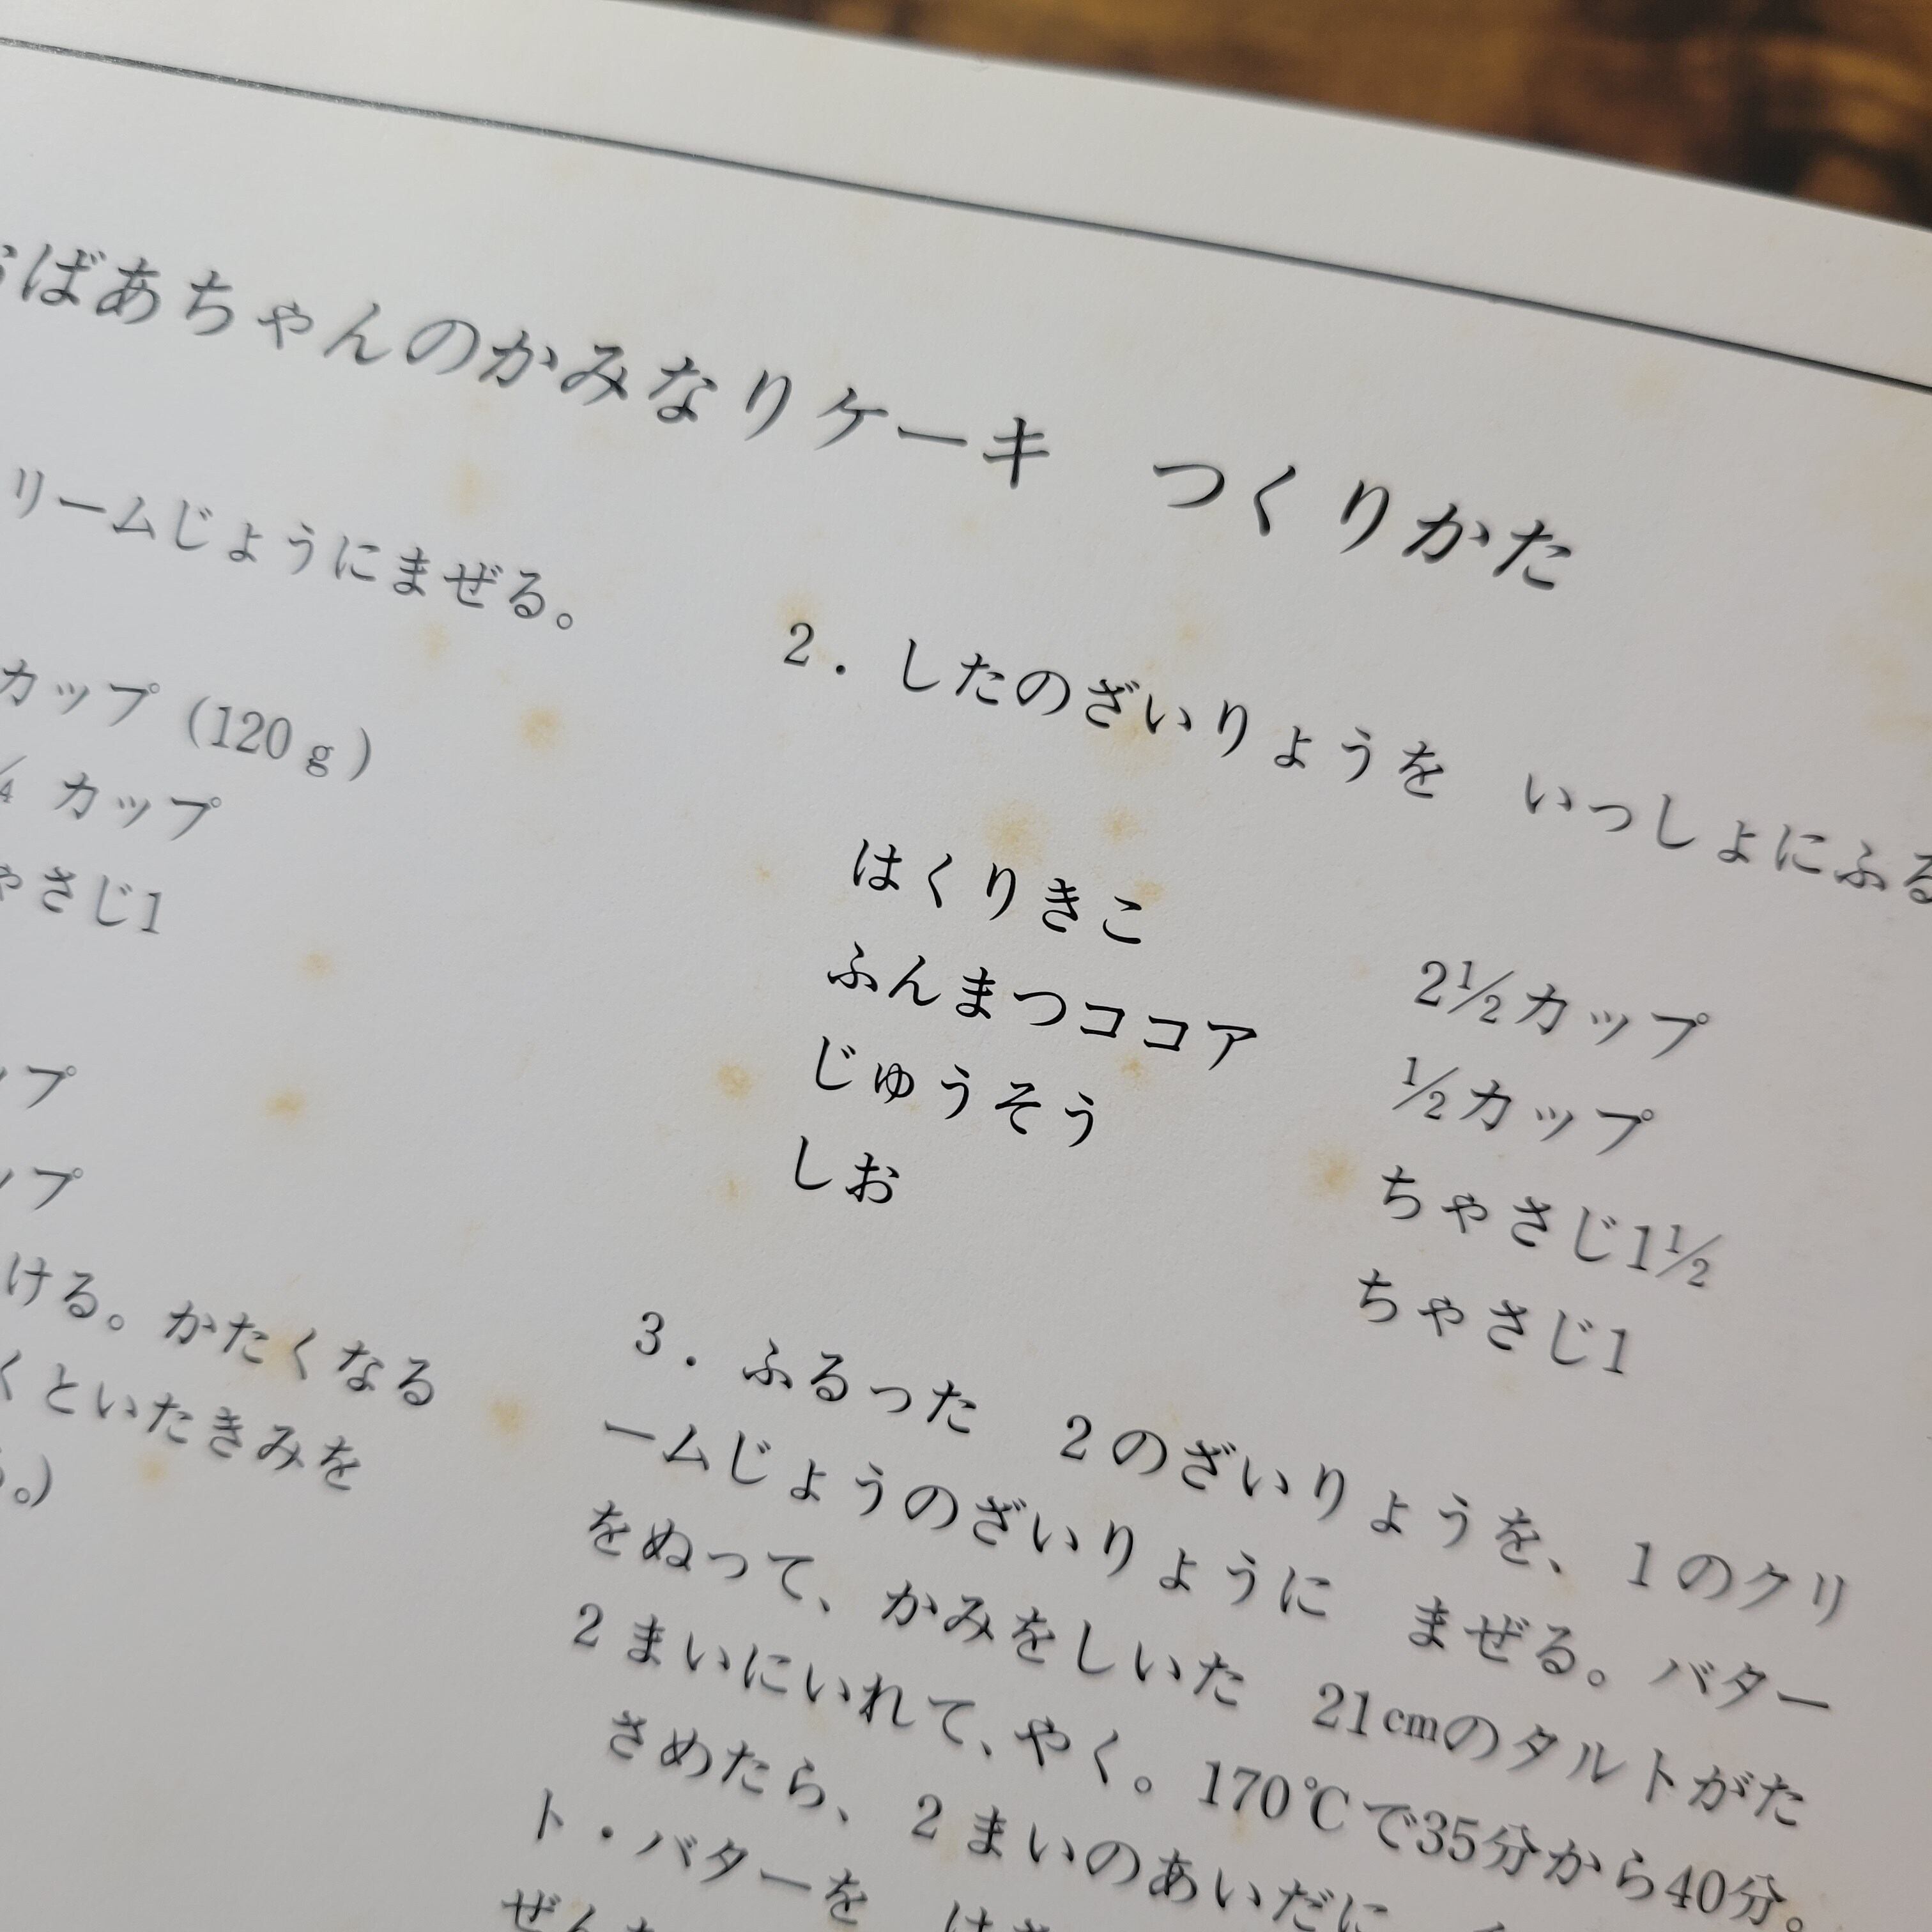 ばあちゃんのかみなりケーキ　つくりかた
リームじょうにまぜる。
カップ（120ｇ）
¼ カップ
ゃさじ1
ップ
ップ
ける。かたくなる
くといたきみを
。）
2．したのざいりょうを　いっしょにふる
はくりきこ　2½カップ
ふんまつココア　½カップ
じゅうそう　ちゃさじ1½
しお　ちゃさじ1
3．ふるった　2のざいりょうを、1のクリ
ームじょうのざいりょうに　まぜる。バター
をぬって、かみをしいた　21cmのタルトがた
2まいにいれて、やく。170℃で35分から40分。
さめたら、2まいのあいだに、
ト・バターを　はさ
ぜんた